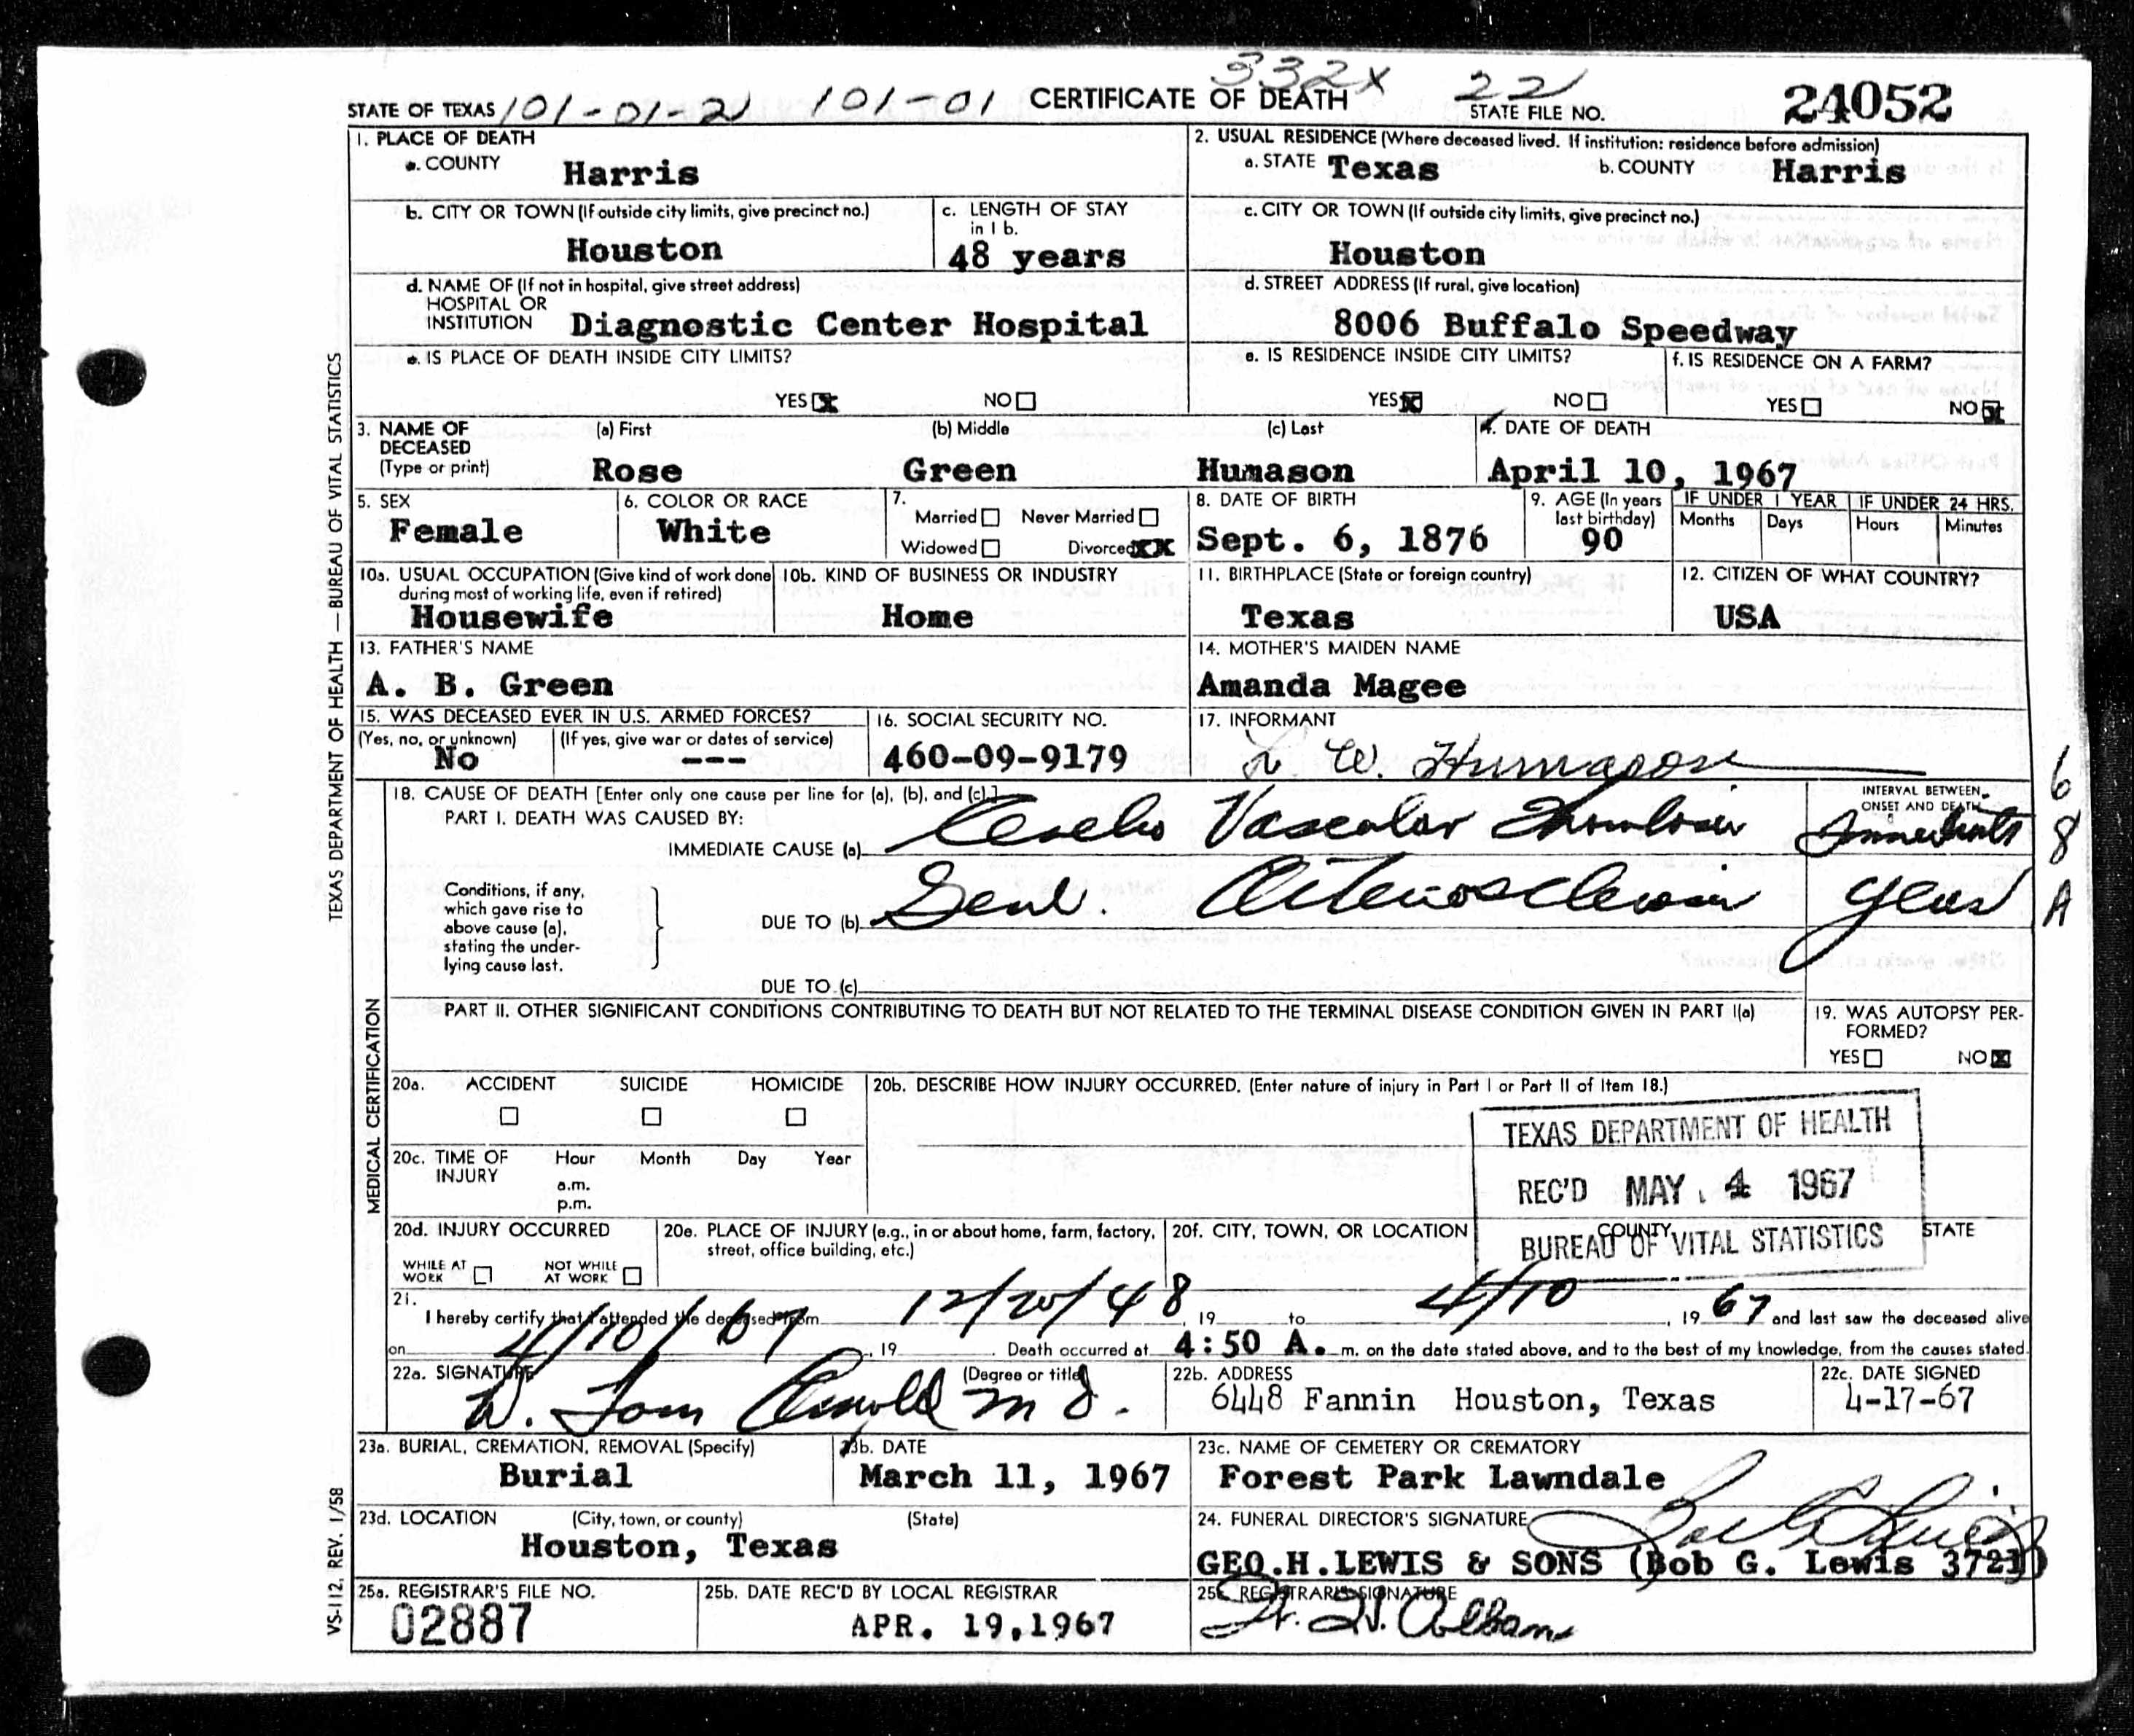 332x 22
STATE OF TEXAS 101-01-21 101-01 CERTIFICATE OF DEATH STATE FILE NO. 24052
1. PLACE OF DEATH
a. COUNTY Harris
2. USUAL RESIDENCE (Where deceased lived. If institution: residence before admission)
a. STATE Texas b. COUNTY Harris
b. CITY OR TOWN (If outside city limits, give precinct no.) Houston
c. LENGTH OF STAY in 1 b. 48 years
c. CITY OR TOWN (If outside city limits, give precinct no.) Houston
d. NAME OF (If not in hospital, give street address)
HOSPITAL OR
INSTITUTION Diagnostic Center Hospital
d. STREET ADDRESS (If rural, give location)
8006 Buffalo Speedway
e. IS PLACE OF DEATH INSIDE CITY LIMITS?
YES X NO
e. IS RESIDENCE INSIDE CITY LIMITS?
YES X NO
f. IS RESIDENCE ON A FARM?
YES NO X
3. NAME OF DECEASED (Type or print)
(a) First (b) Middle (c) Last
Rose Green Humason
4. DATE OF DEATH
April 10, 1967
5. SEX
Female
6. COLOR OR RACE
White
7.
Married Never Married
Widowed Divorced XX
8. DATE OF BIRTH
Sept. 6, 1876
9. AGE (In years last birthday)
90
IF UNDER 1 YEAR IF UNDER 24 HRS.
Months Days Hours Minutes
10a. USUAL OCCUPATION (Give kind of work done during most of working life, even if retired)
Housewife
10b. KIND OF BUSINESS OR INDUSTRY
Home
11. BIRTHPLACE (State or foreign country)
Texas
12. CITIZEN OF WHAT COUNTRY?
USA
13. FATHER'S NAME
A. B. Green
14. MOTHER'S MAIDEN NAME
Amanda Magee
15. WAS DECEASED EVER IN U.S. ARMED FORCES?
(Yes, no, or unknown) (If yes, give war or dates of service)
No ---
16. SOCIAL SECURITY NO.
460-09-9179
17. INFORMANT
W. Humason
18. CAUSE OF DEATH [Enter only one cause per line for (a), (b), and (c).]
PART I. DEATH WAS CAUSED BY:
IMMEDIATE CAUSE (a) Cerebro Vascular Thrombosis
INTERVAL BETWEEN ONSET AND DEATH
Immediate
Conditions, if any, which gave rise to above cause (a), stating the underlying cause last.
DUE TO (b) Genl. Arteriosclerosis years
DUE TO (c)
6
8
A
PART II. OTHER SIGNIFICANT CONDITIONS CONTRIBUTING TO DEATH BUT NOT RELATED TO THE TERMINAL DISEASE CONDITION GIVEN IN PART I(a)
19. WAS AUTOPSY PERFORMED?
YES NO X
20a. ACCIDENT SUICIDE HOMICIDE
20b. DESCRIBE HOW INJURY OCCURRED. (Enter nature of injury in Part I or Part II of Item 18.)
20c. TIME OF INJURY Hour Month Day Year
a.m.
p.m.
TEXAS DEPARTMENT OF HEALTH
REC'D MAY 4 1967
BUREAU OF VITAL STATISTICS
20d. INJURY OCCURRED
WHILE AT WORK NOT WHILE AT WORK
20e. PLACE OF INJURY (e.g., in or about home, farm, factory, street, office building, etc.)
20f. CITY, TOWN, OR LOCATION COUNTY STATE
21.
I hereby certify that I attended the deceased from 12/20/48, 19 to 4/10, 1967 and last saw the deceased alive
on 4/10/67, 19 . Death occurred at 4:50 A. m. on the date stated above, and to the best of my knowledge, from the causes stated.
22a. SIGNATURE (Degree or title)
W. Tom Arnold M D.
22b. ADDRESS
6448 Fannin Houston, Texas
22c. DATE SIGNED
4-17-67
23a. BURIAL, CREMATION, REMOVAL (Specify)
Burial
23b. DATE
March 11, 1967
23c. NAME OF CEMETERY OR CREMATORY
Forest Park Lawndale
23d. LOCATION (City, town, or county) (State)
Houston, Texas
24. FUNERAL DIRECTOR'S SIGNATURE
Bob G Lewis
GEO.H.LEWIS & SONS (Bob G. Lewis 3721)
25a. REGISTRAR'S FILE NO.
02887
25b. DATE REC'D BY LOCAL REGISTRAR
APR. 19,1967
25c. REGISTRAR'S SIGNATURE
TEXAS DEPARTMENT OF HEALTH — BUREAU OF VITAL STATISTICS
MEDICAL CERTIFICATION
VS-112, REV. 1/58